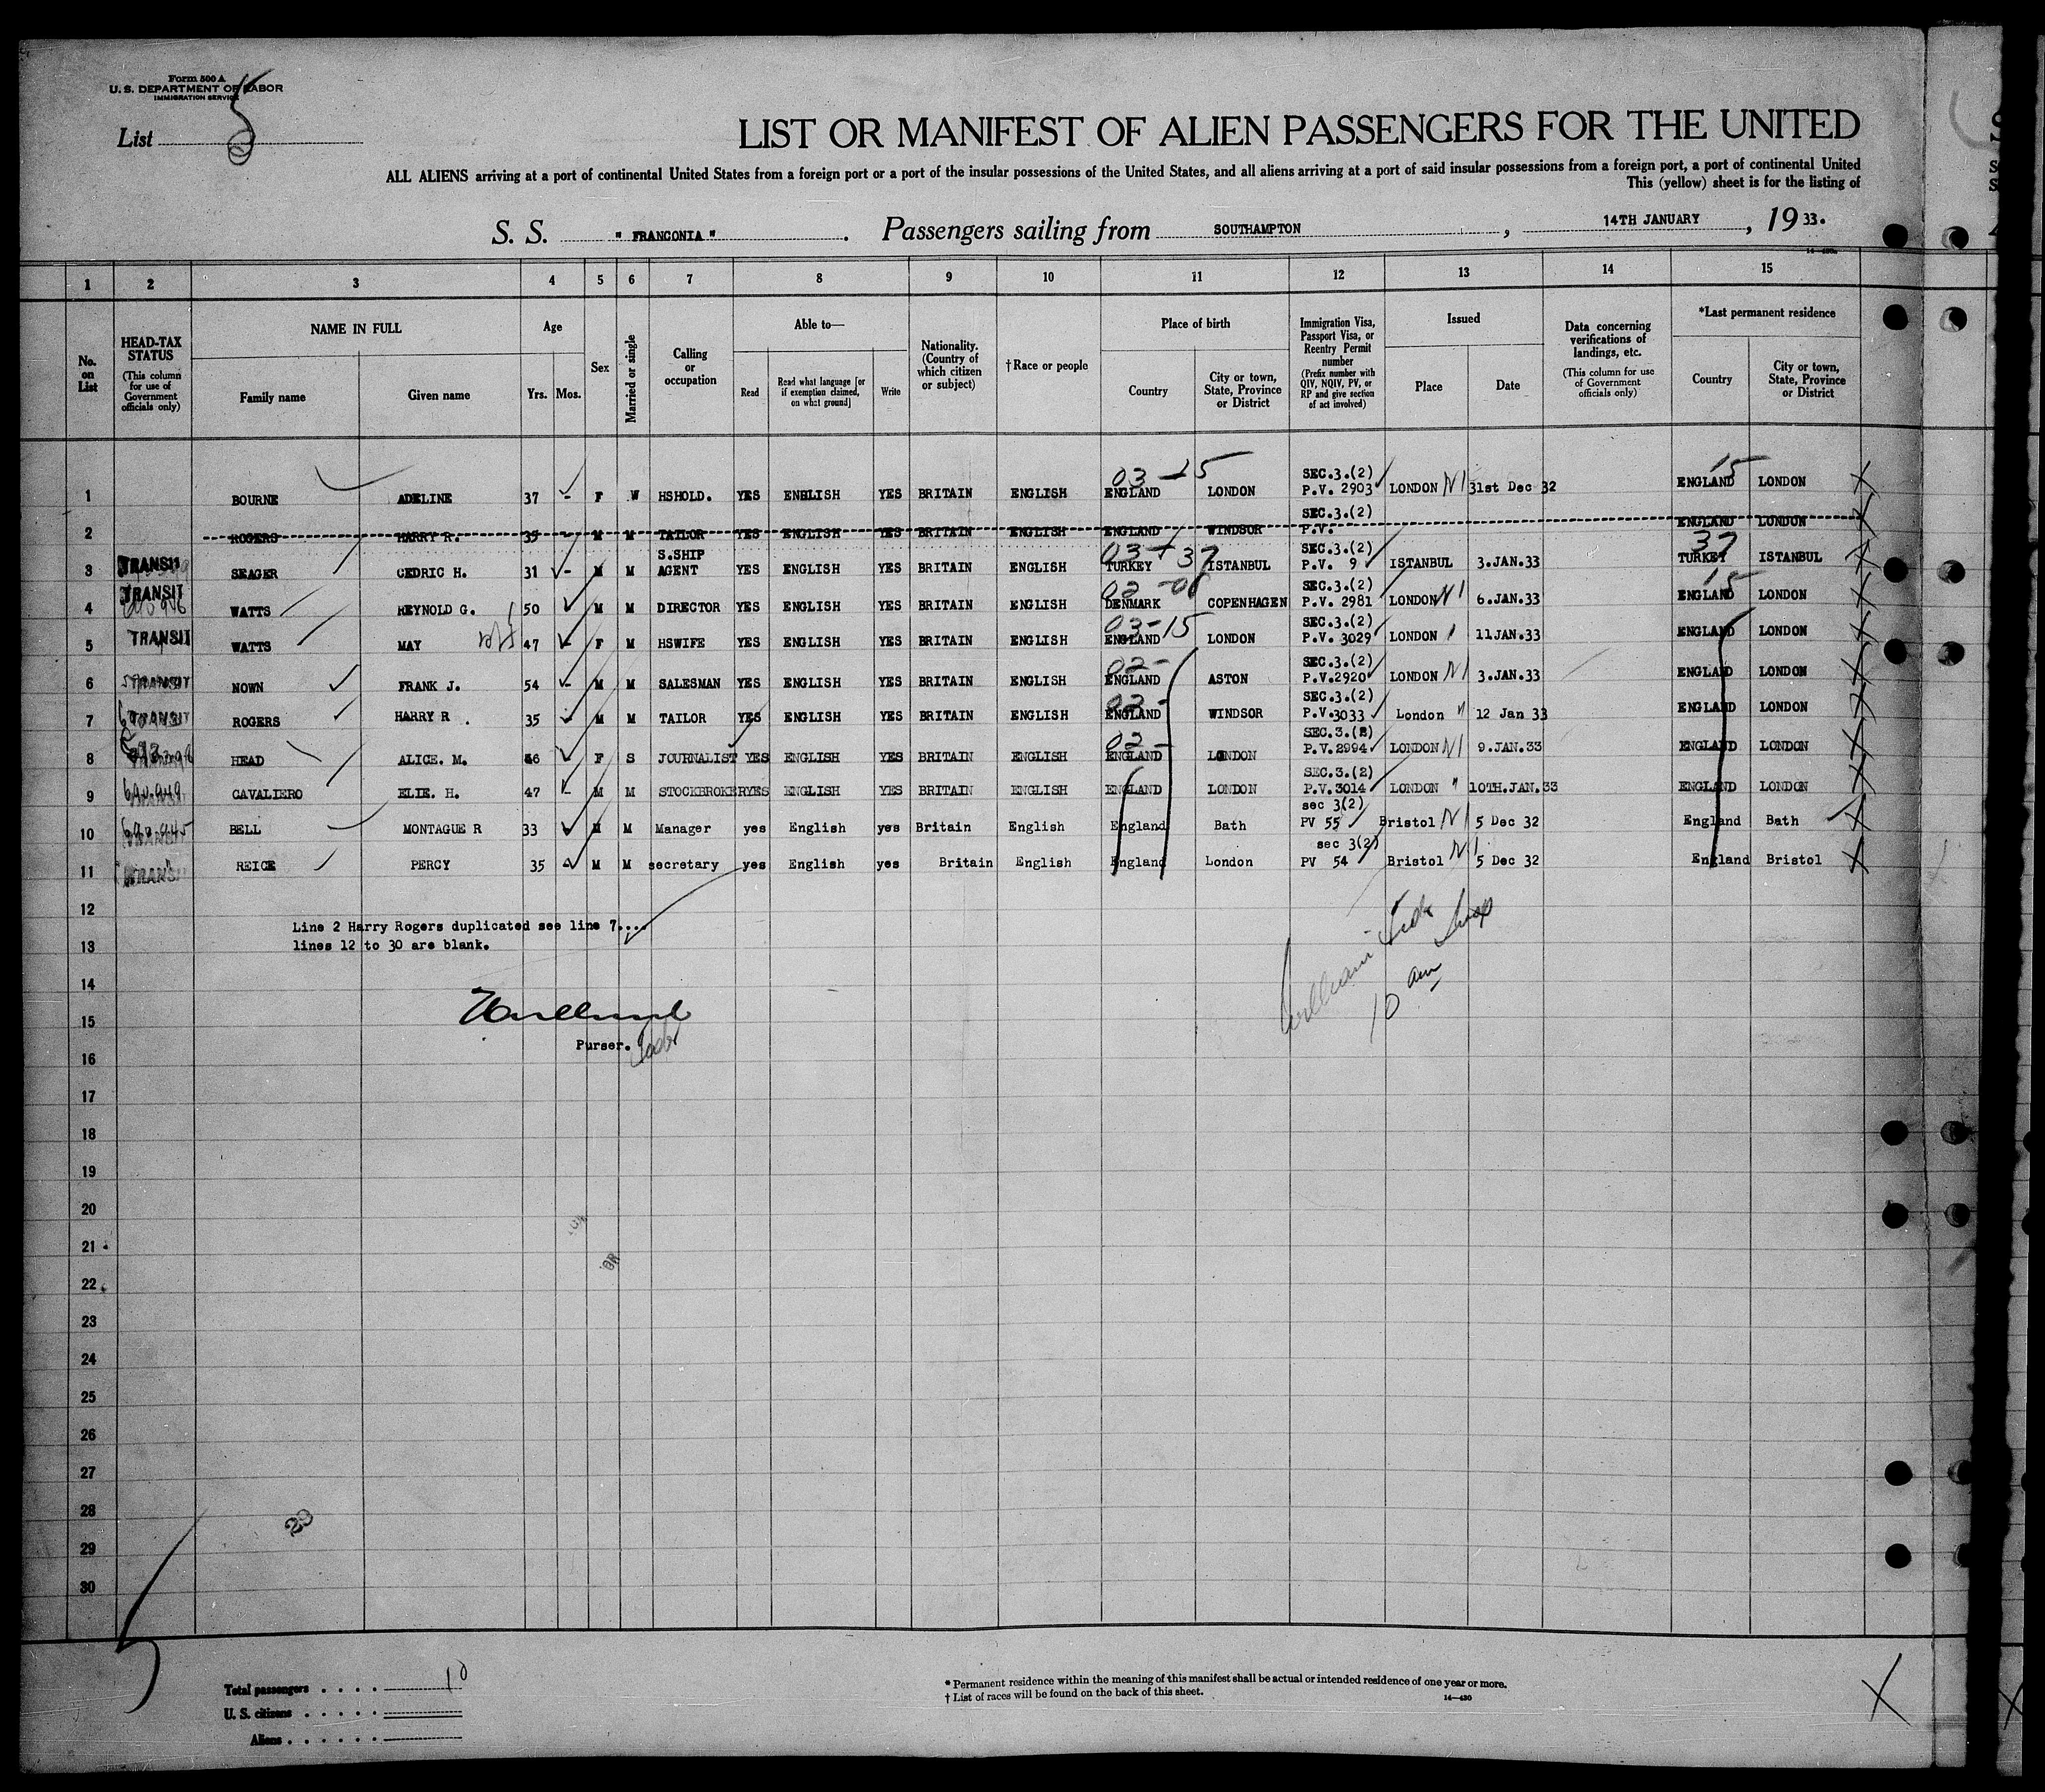 Form 500 A
U. S. DEPARTMENT OF LABOR
IMMIGRATION SERVICE
List 5
LIST OR MANIFEST OF ALIEN PASSENGERS FOR THE UNITED
ALL ALIENS arriving at a port of continental United States from a foreign port or a port of the insular possessions of the United States, and all aliens arriving at a port of said insular possessions from a foreign port, a port of continental United
This (yellow) sheet is for the listing of
S. S. " FRANCONIA " . Passengers sailing from SOUTHAMPTON , 14TH JANUARY , 19 33.
1 2 3 4 5 6 7 8 9 10 11 12 13 14 15
No. on List
HEAD-TAX STATUS (This column for use of Government officials only)
NAME IN FULL Family name Given name
Age Yrs. Mos.
Sex
Married or single
Calling or occupation
Able to— Read Read what language [or if exemption claimed, on what ground] Write
Nationality. (Country of which citizen or subject)
† Race or people
Place of birth Country City or town, State, Province or District
Immigration Visa, Passport Visa, or Reentry Permit number (Prefix number with QIV, NQIV, PV, or RP and give section of act involved)
Issued Place Date
Data concerning verifications of landings, etc. (This column for use of Government officials only)
*Last permanent residence Country City or town, State, Province or District
1 BOURNE ADELINE 37 - F W HSHOLD. YES ENGLISH YES BRITAIN ENGLISH 03-15 ENGLAND LONDON SEC.3.(2) P.V. 2903 LONDON N1 31st Dec 32 15 ENGLAND LONDON X
2 ROGERS HARRY R. 35 - M M TAILOR YES ENGLISH YES BRITAIN ENGLISH ENGLAND WINDSOR SEC.3.(2) P.V. ENGLAND LONDON X
3 TRANSIT SEAGER CEDRIC H. 31 - M M S.SHIP AGENT YES ENGLISH YES BRITAIN ENGLISH 03-37 TURKEY ISTANBUL SEC.3.(2) P.V. 9 ISTANBUL 3.JAN.33 37 TURKEY ISTANBUL X
4 TRANSIT WATTS REYNOLD G. 50 M M DIRECTOR YES ENGLISH YES BRITAIN ENGLISH 02 DENMARK COPENHAGEN SEC.3.(2) P.V. 2981 LONDON N1 6.JAN.33 15 ENGLAND LONDON X
5 TRANSIT WATTS MAY 47 F M HSWIFE YES ENGLISH YES BRITAIN ENGLISH 03-15 ENGLAND LONDON SEC.3.(2) P.V. 3029 LONDON 11JAN.33 ENGLAND LONDON X
6 TRANSIT NOWN FRANK J. 54 - M M SALESMAN YES ENGLISH YES BRITAIN ENGLISH 02- ENGLAND ASTON SEC.3.(2) P.V.2920 LONDON N1 3.JAN.33 ENGLAND LONDON X
7 TRANSIT ROGERS HARRY R . 35 M M TAILOR YES ENGLISH YES BRITAIN ENGLISH 02- ENGLAND WINDSOR SEC.3.(2) P.V.3033 London " 12 Jan 33 ENGLAND LONDON X
8 HEAD ALICE. M. 46 F S JOURNALIST YES ENGLISH YES BRITAIN ENGLISH 02- ENGLAND LONDON SEC.3.(2) P.V.2994 LONDON N1 9.JAN.33 ENGLAND LONDON X
9 CAVALIERO ELIE. H. 47 - M M STOCKBROKER YES ENGLISH YES BRITAIN ENGLISH ENGLAND LONDON SEC.3.(2) P.V.3014 LONDON " 10TH.JAN.33 ENGLAND LONDON X
10 BELL MONTAGUE R 33 M M Manager yes English yes Britain English England Bath sec 3(2) PV 55 Bristol N1 5 Dec 32 England Bath X
11 REICE PERCY 35 M M secretary yes English yes Britain English England London sec 3(2) PV 54 Bristol N1 5 Dec 32 England Bristol X
12
Line 2 Harry Rogers duplicated see line 7....
13 lines 12 to 30 are blank.
14
10 am
15
Purser.
16
17
18
19
20
21
22
23
24
25
26
27
28
29
30
Total passengers . . . . 10
U. S. citizens . . . . .
Aliens . . . . . .
* Permanent residence within the meaning of this manifest shall be actual or intended residence of one year or more.
† List of races will be found on the back of this sheet.
14—430
X